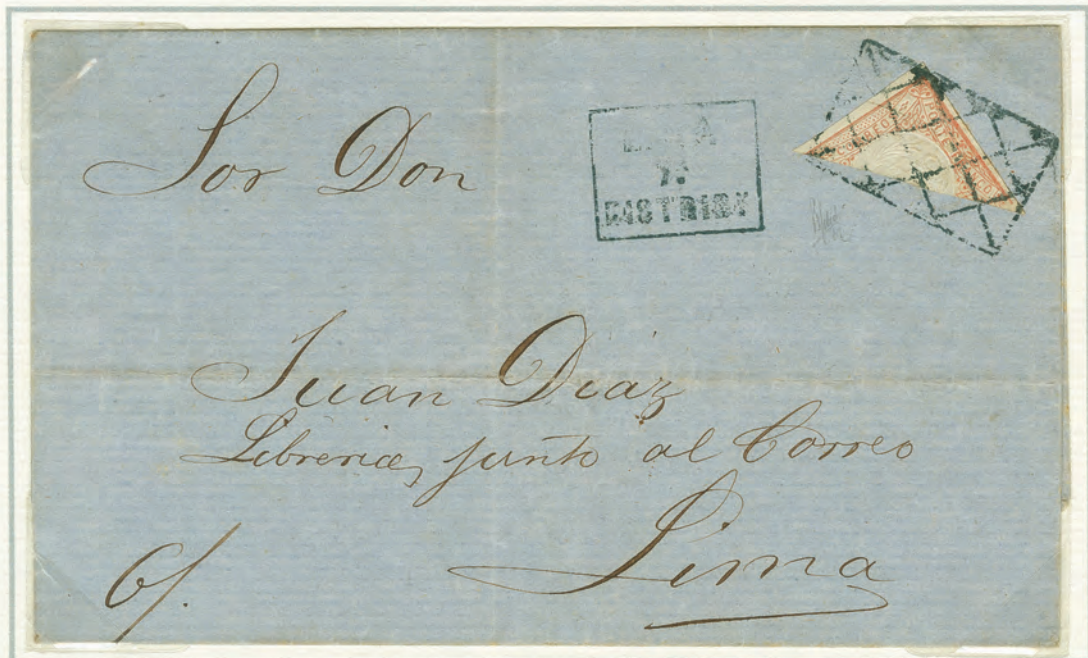 Sor Don
7.
DISTRICT
Juan Diaz
Libreria, junto al Correo
Lima
6/.